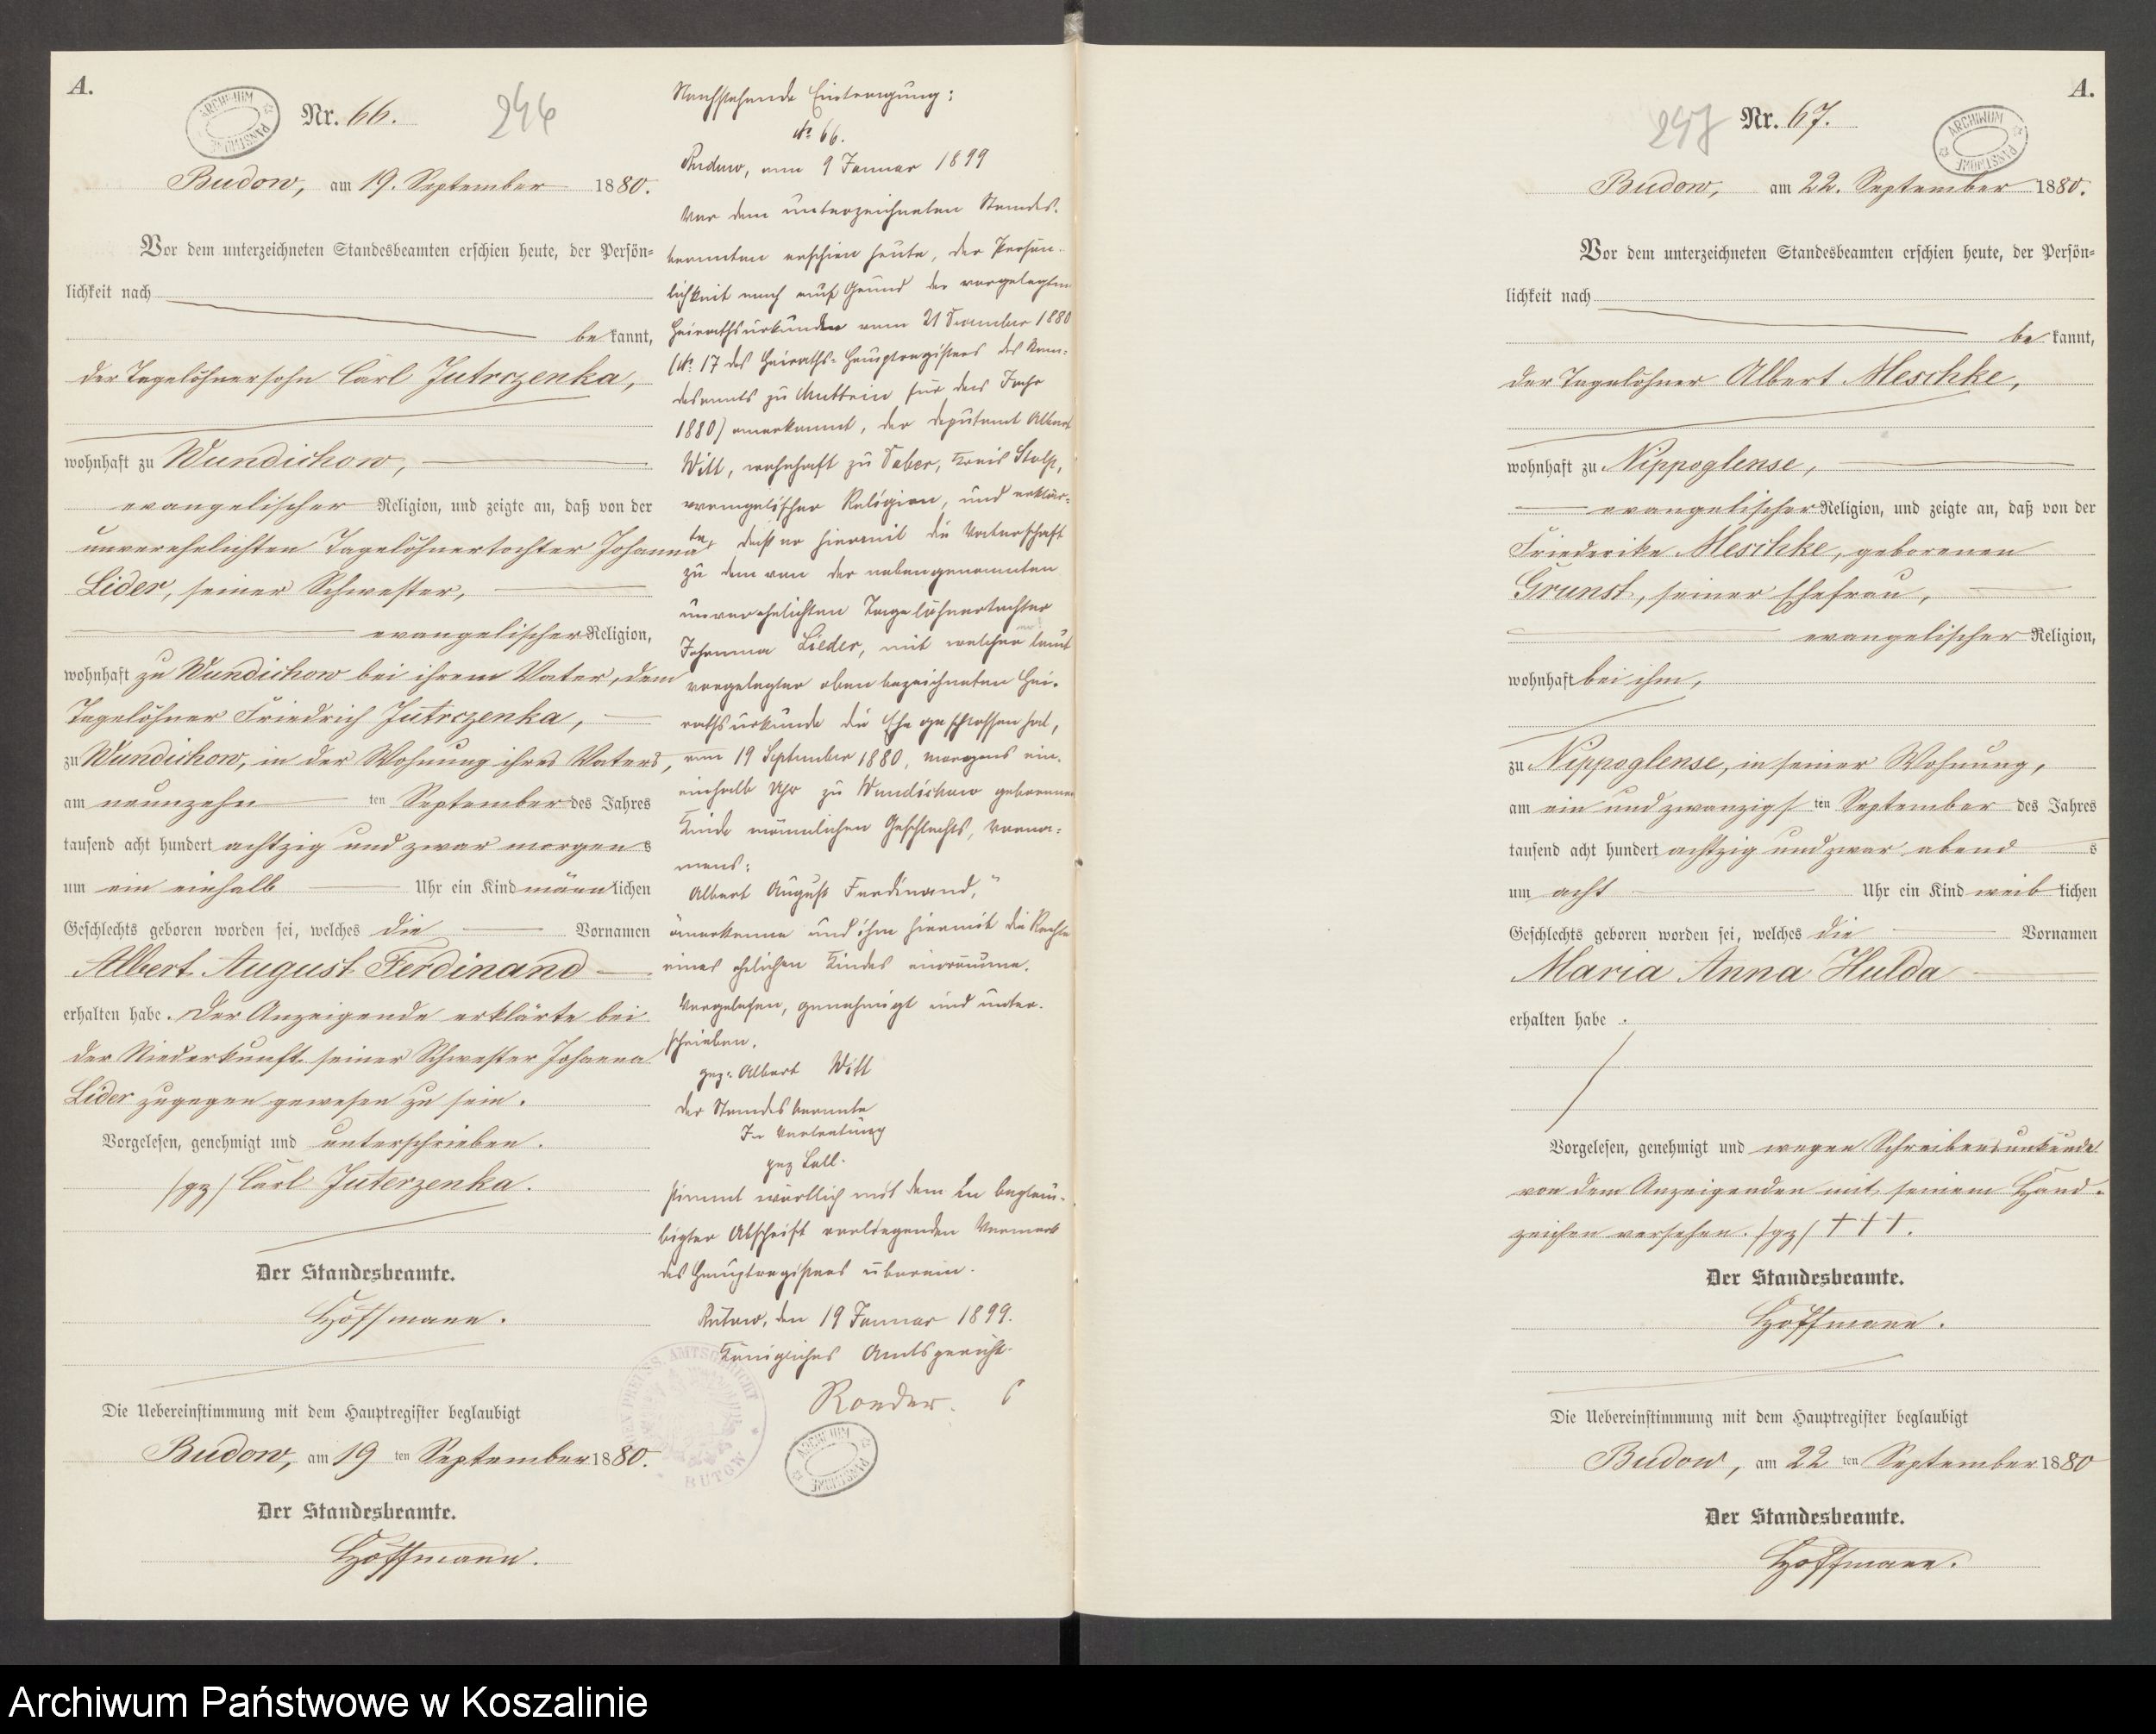 A.
ARCHIWUM PAŃSTWOWE
Nr. 66.
246
Budow, am 19. September 1880.
Vor dem unterzeichneten Standesbeamten erschien heute, der Persön=
lichkeit nach
be kannt,
der Tagelöhnersohn Carl Jutrczenka,
wohnhaft zu Wundichow,
evangelischer Religion, und zeigte an, daß von der
unverehelichten Tagelöhnertochter Johanna
Lider, seiner Schwester,
evangelischer Religion,
wohnhaft zu Wundichow bei ihrem Vater, dem
Tagelöhner Friedrich Jutrczenka,
zu Wundichow, in der Wohnung ihres Vaters,
am neunzehn ten September des Jahres
tausend acht hundert achtzig und zwar morgens
um ein einhalb Uhr ein Kind männlichen
Geschlechts geboren worden sei, welches die Vornamen
Albert August Ferdinand
erhalten habe. Der Anzeigende erklärte bei
der Niederkunft seiner Schwester Johanna
Lider zugegen gewesen zu sein.
Vorgelesen, genehmigt und unterschrieben.
/gz/ Carl Juterzenka.
Der Standesbeamte.
Hoffmann.
Die Uebereinstimmung mit dem Hauptregister beglaubigt
Budow, am 19 ten September 1880.
Der Standesbeamte.
Hoffmann.
Nachstehende Eintragung:
No 66.
Budow, am 9 Januar 1899
Vor dem unterzeichneten Standes-
beamten erschien heute, der Persön-
lichkeit nach auf Grund der vorgelegten
Heirathsurkunde vom 21 Dezember 1880
(No 17 des Heiraths-Hauptregisters des Stan-
desamts zu Muttrin für das Jahr
1880) anerkannt, der Deputant Albert
Witt, wohnhaft zu Kreis Stolp,
evangelischer Religion, und erklär-
te, daß er hiermit die Vaterschaft
zu dem von der nebengenannten
unverehelichten Tagelöhnertochter
Johanna Lieder, mit welcher laut
vorgelegter oben bezeichneten Hei-
rathsurkunde die Ehe geschlossen hat,
am 19 September 1880, morgens ein-
einhalb Uhr zu Wundichow geborenen
Kinde männlichen Geschlechts, Vorna-
mens:
Albert August Ferdinand,"
anerkenne und ihm hiermit die Rechte
eines ehelichen Kindes einräume.
Vorgelesen, genehmigt und unter-
schrieben.
gez: Albert Witt
Der Standesbeamte
In Vertretung
gez
stimmt wörtlich mit dem in beglau-
bigter Abschrift vorliegenden Vermerk
des Hauptregisters überein.
Bütow, den 19 Januar 1899.
Königliches Amtsgericht.
Roeder.
AMTSGERICHT BUTOW
ARCHIWUM PAŃSTWOWE
A.
247
Nr. 67.
ARCHIWUM PAŃSTWOWE
Budow, am 22. September 1880.
Vor dem unterzeichneten Standesbeamten erschien heute, der Persön=
lichkeit nach
be kannt,
der Tagelöhner Albert Meschke,
wohnhaft zu Nippoglense,
evangelischer Religion, und zeigte an, daß von der
Friederike Meschke, geborenen
Grunst, seiner Ehefrau,
evangelischer Religion,
wohnhaft bei ihm,
zu Nippoglense, in seiner Wohnung,
am ein und zwanzigs ten September des Jahres
tausend acht hundert achtzig und zwar abend s
um acht Uhr ein Kind weib lichen
Geschlechts geboren worden sei, welches die Vornamen
Maria Anna Hulda
erhalten habe .
Vorgelesen, genehmigt und wegen Schreibensunkunde
von dem Anzeigenden mit seinem Hand-
zeichen versehen. /gz/ † † †.
Der Standesbeamte.
Hoffmann.
Die Uebereinstimmung mit dem Hauptregister beglaubigt
Budow, am 22 ten September 1880
Der Standesbeamte.
Hoffmann.
Archiwum Państwowe w Koszalinie